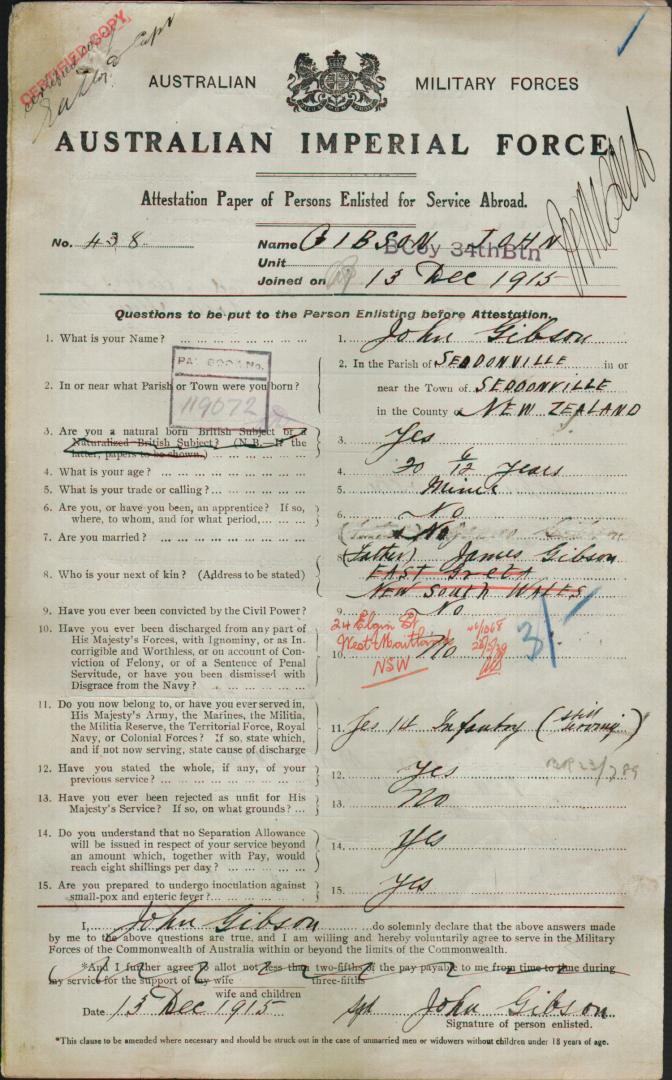 CERTIFIED COPY
AUSTRALIAN MILITARY FORCES
AUSTRALIAN IMPERIAL FORCE
Attestation Paper of Persons Enlisted for Service Abroad.
No. 438 Name GIBSON JOHN
B Coy 34th Btn
Unit
Joined on 13 Dec 1915
Questions to be put to the Person Enlisting before Attestation.
1. What is your Name? 1. John Gibson
2. In or near what Parish or Town were you born? 2. In the Parish of SEDDONVILLE in or
near the Town of SEDDONVILLE
in the County of NEW ZEALAND
119072
3. Are you a natural born British Subject or a
Naturalized British Subject? (N.B.—If the
latter, papers to be shown.) 3. Yes
4. What is your age? 4. 20 6/12 years
5. What is your trade or calling? 5. Miner
6. Are you, or have you been, an apprentice? If so,
where, to whom, and for what period, 6. No
7. Are you married? No
8. Who is your next of kin? (Address to be stated) (Father) James Gibson
EAST Greta
NEW SOUTH WALES
24 Elgin St
West Maitland
NSW
3/-
9. Have you ever been convicted by the Civil Power? 9. No
10. Have you ever been discharged from any part of
His Majesty's Forces, with Ignominy, or as In-
corrigible and Worthless, or on account of Con-
viction of Felony, or of a Sentence of Penal
Servitude, or have you been dismissed with
Disgrace from the Navy? 10. No
11. Do you now belong to, or have you ever served in,
His Majesty's Army, the Marines, the Militia,
the Militia Reserve, the Territorial Force, Royal
Navy, or Colonial Forces? If so, state which,
and if not now serving, state cause of discharge 11. Yes 14 Infantry (still serving)
12. Have you stated the whole, if any, of your
previous service? 12. Yes
13. Have you ever been rejected as unfit for His
Majesty's Service? If so, on what grounds? 13. No
14. Do you understand that no Separation Allowance
will be issued in respect of your service beyond
an amount which, together with Pay, would
reach eight shillings per day? 14. Yes
15. Are you prepared to undergo inoculation against
small-pox and enteric fever? 15. Yes
I, John Gibson do solemnly declare that the above answers made
by me to the above questions are true, and I am willing and hereby voluntarily agree to serve in the Military
Forces of the Commonwealth of Australia within or beyond the limits of the Commonwealth.
*And I further agree to allot not less than two-fifths of the pay payable to me from time to time during
my service for the support of my wife three-fifths
wife and children
Date 13 Dec 1915 sgd John Gibson
Signature of person enlisted.
*This clause to be amended where necessary and should be struck out in the case of unmarried men or widowers without children under 18 years of age.